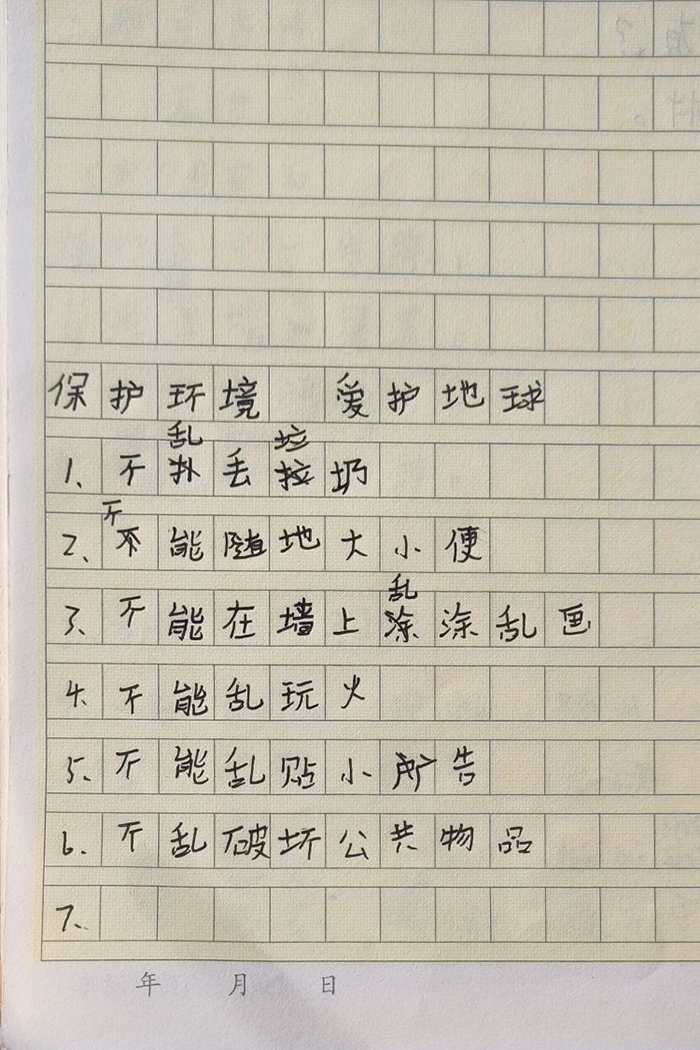 保护环境 爱护地球
1、不乱丢垃圾
2、不能随地大小便
3、不能在墙上乱涂乱画
4、不能乱玩火
5、不能乱贴小广告
6、不乱破坏公共物品
7、
年 月 日